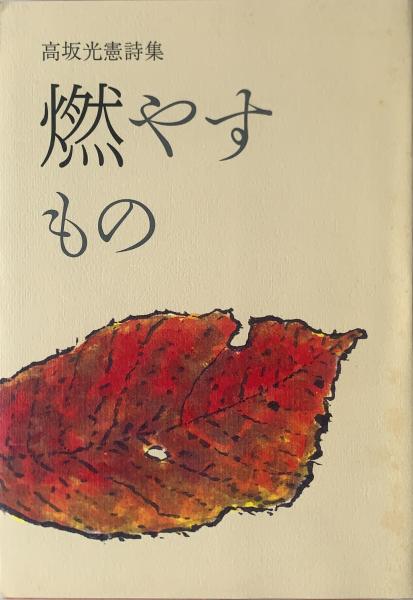 高坂光憲詩集
燃やす
もの